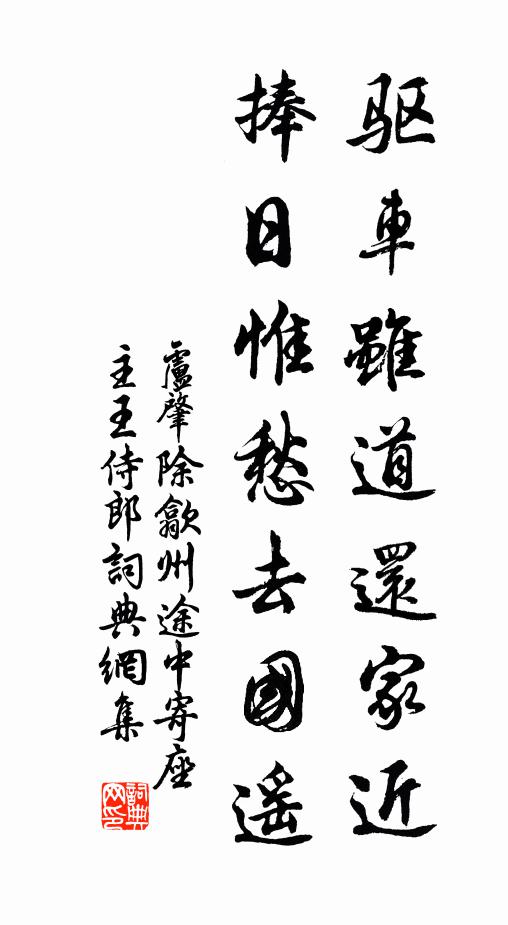 驱車雖道還家近
捧日惟愁去國遥
盧肇除歙州途中寄座
主王侍郎詞典網集
詞典
网印